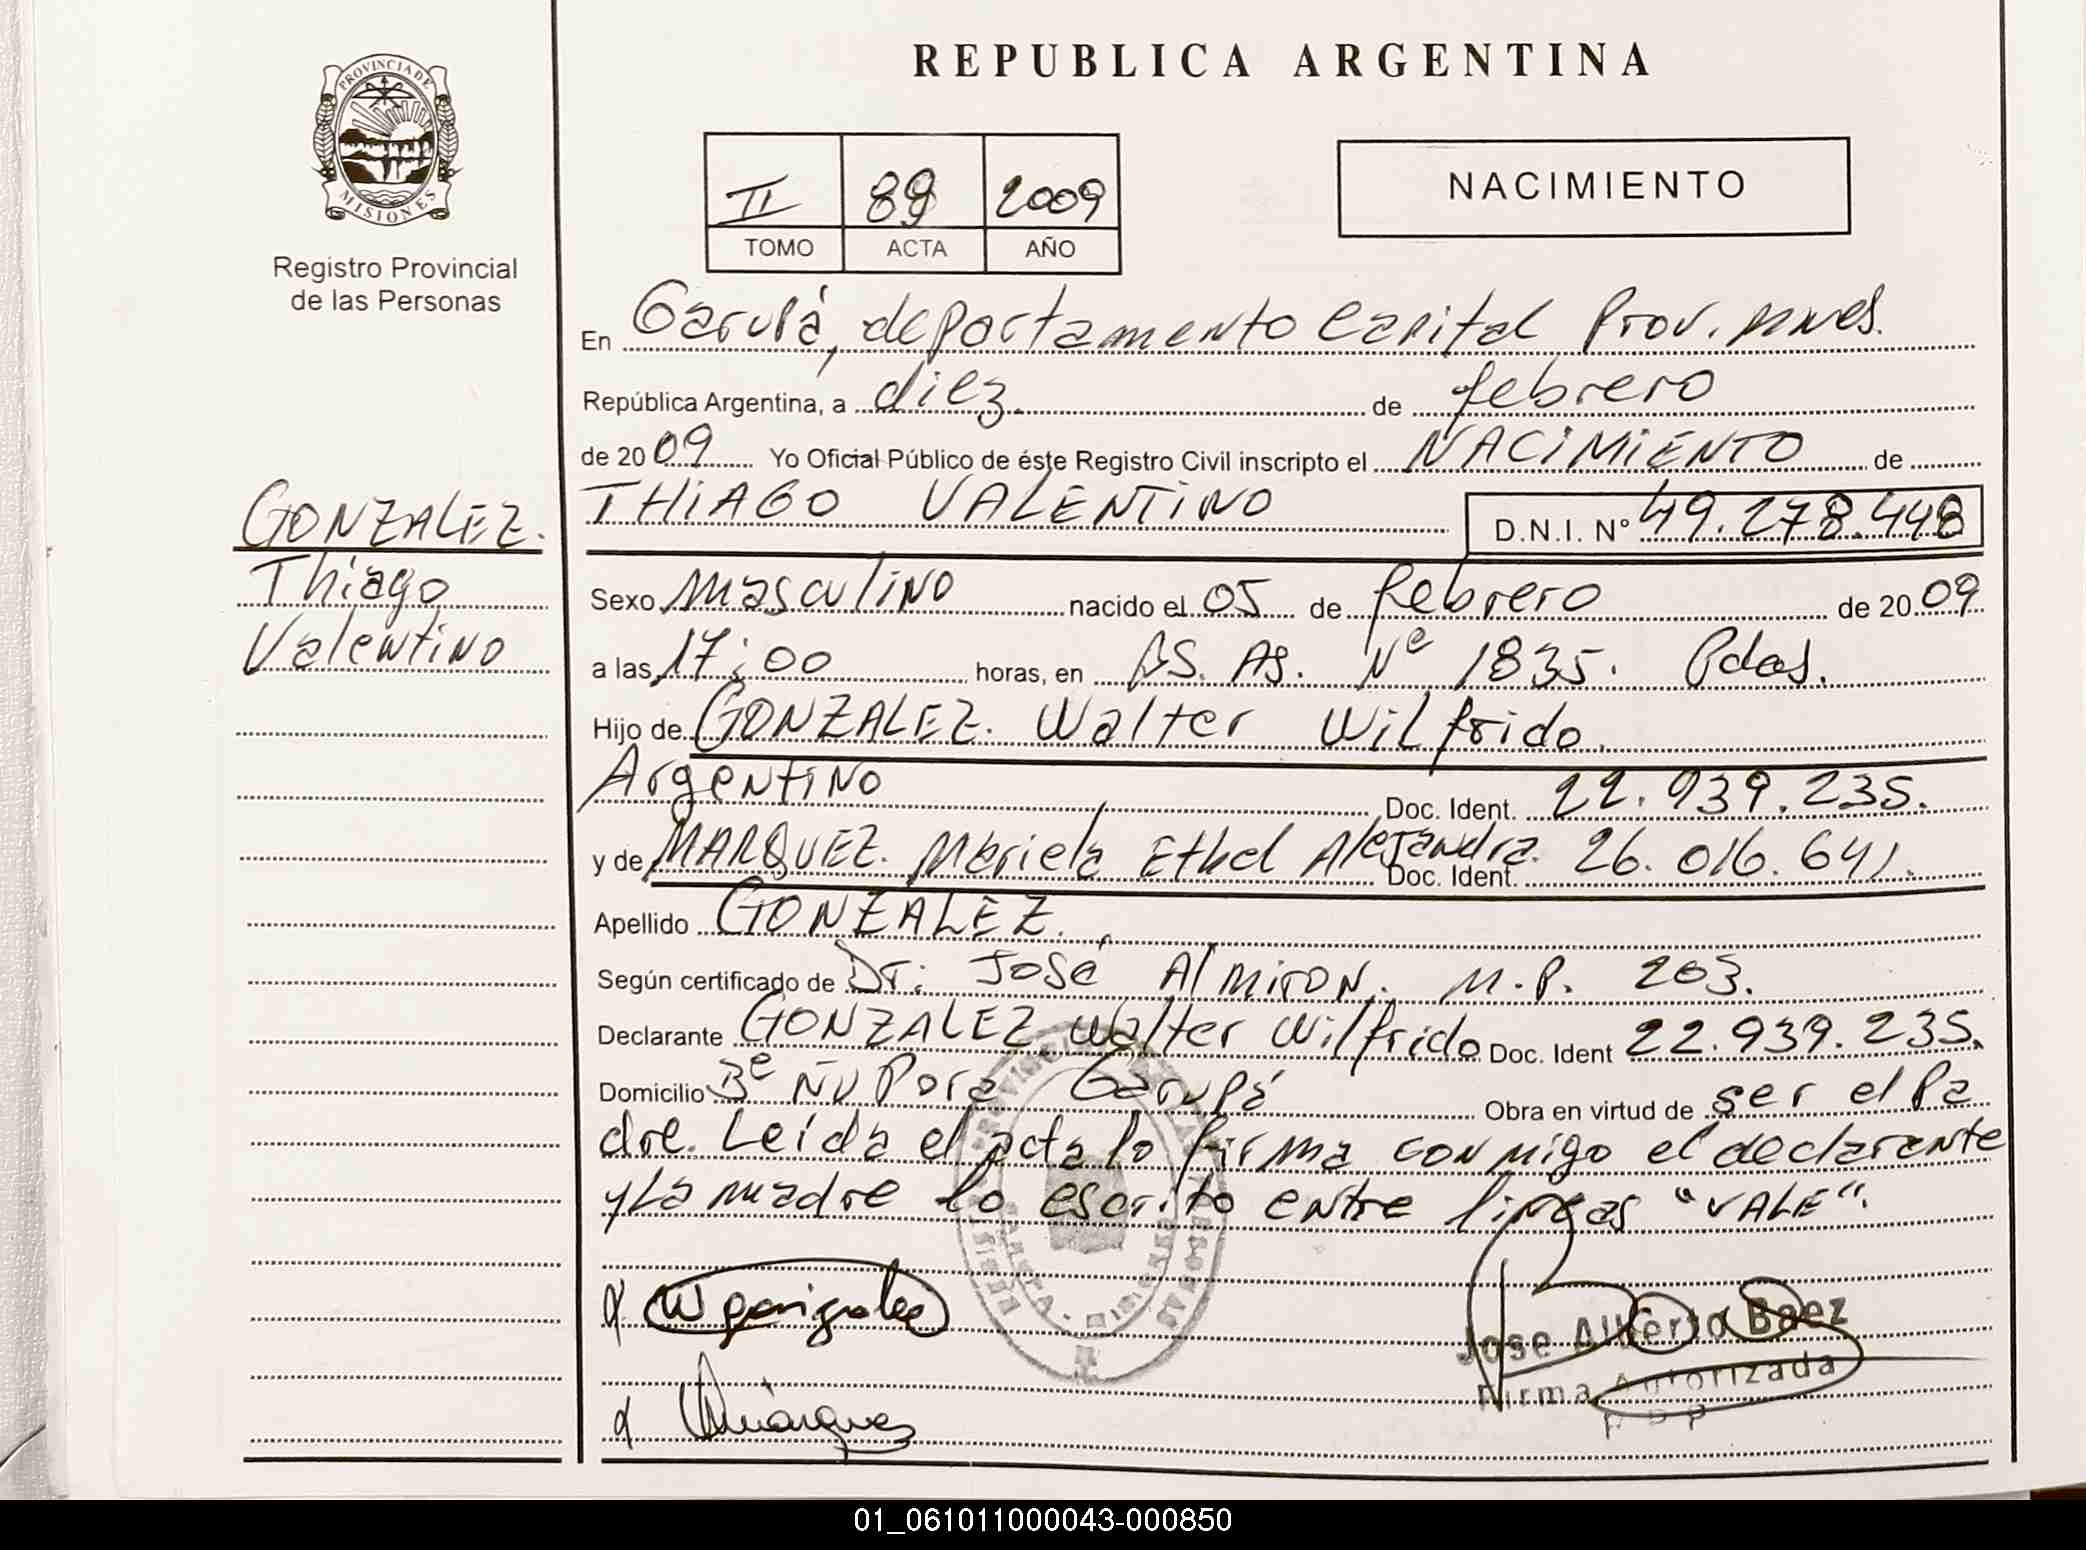 PROVINCIA DE
MISIONES
Registro Provincial
de las Personas
REPUBLICA ARGENTINA
II 89 2009
TOMO ACTA AÑO
NACIMIENTO
En Garupá, departamento Capital Prov. Mnes.
República Argentina, a diez. de febrero
de 2009 Yo Oficial Público de éste Registro Civil inscripto el NACIMIENTO de
THIAGO VALENTINO D.N.I. Nº 49.278.448
GONZALEZ.
Thiago
Valentino
Sexo Masculino nacido el 05 de febrero de 2009
a las 17:00 horas, en BS. AS. Nº 1835. Pdas.
Hijo de GONZALEZ. Walter Wilfrido.
Argentino Doc. Ident. 22.939.235.
y de MARQUEZ. Mariela Ethel Alejandra. Doc. Ident. 26.016.641.
Apellido GONZALEZ.
Según certificado de Dr: José Almiron. M.P. 203.
Declarante GONZALEZ Walter Wilfrido Doc. Ident 22.939.235.
Domicilio Bº Ñu Pora Garupá Obra en virtud de ser el Pa
dre. Leída el acta lo firma conmigo el declarante
y La madre lo escrito entre lineas "VALE".
Jose Alberto Baez
Firma Autorizada
01_061011000043-000850